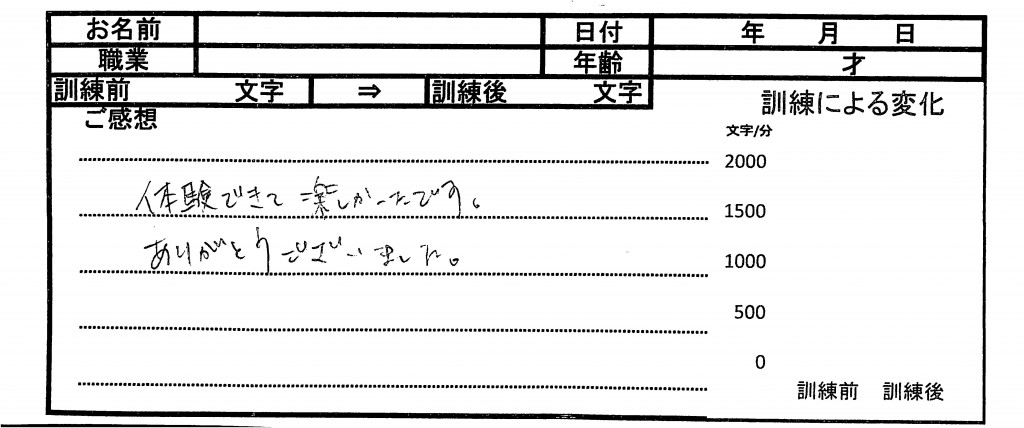 お名前 日付 年 月 日
職業 年齢 才
訓練前 文字 ⇒ 訓練後 文字
ご感想
体験できて楽しかったです。
ありがとうございました。
訓練による変化
文字/分
2000
1500
1000
500
0
訓練前 訓練後